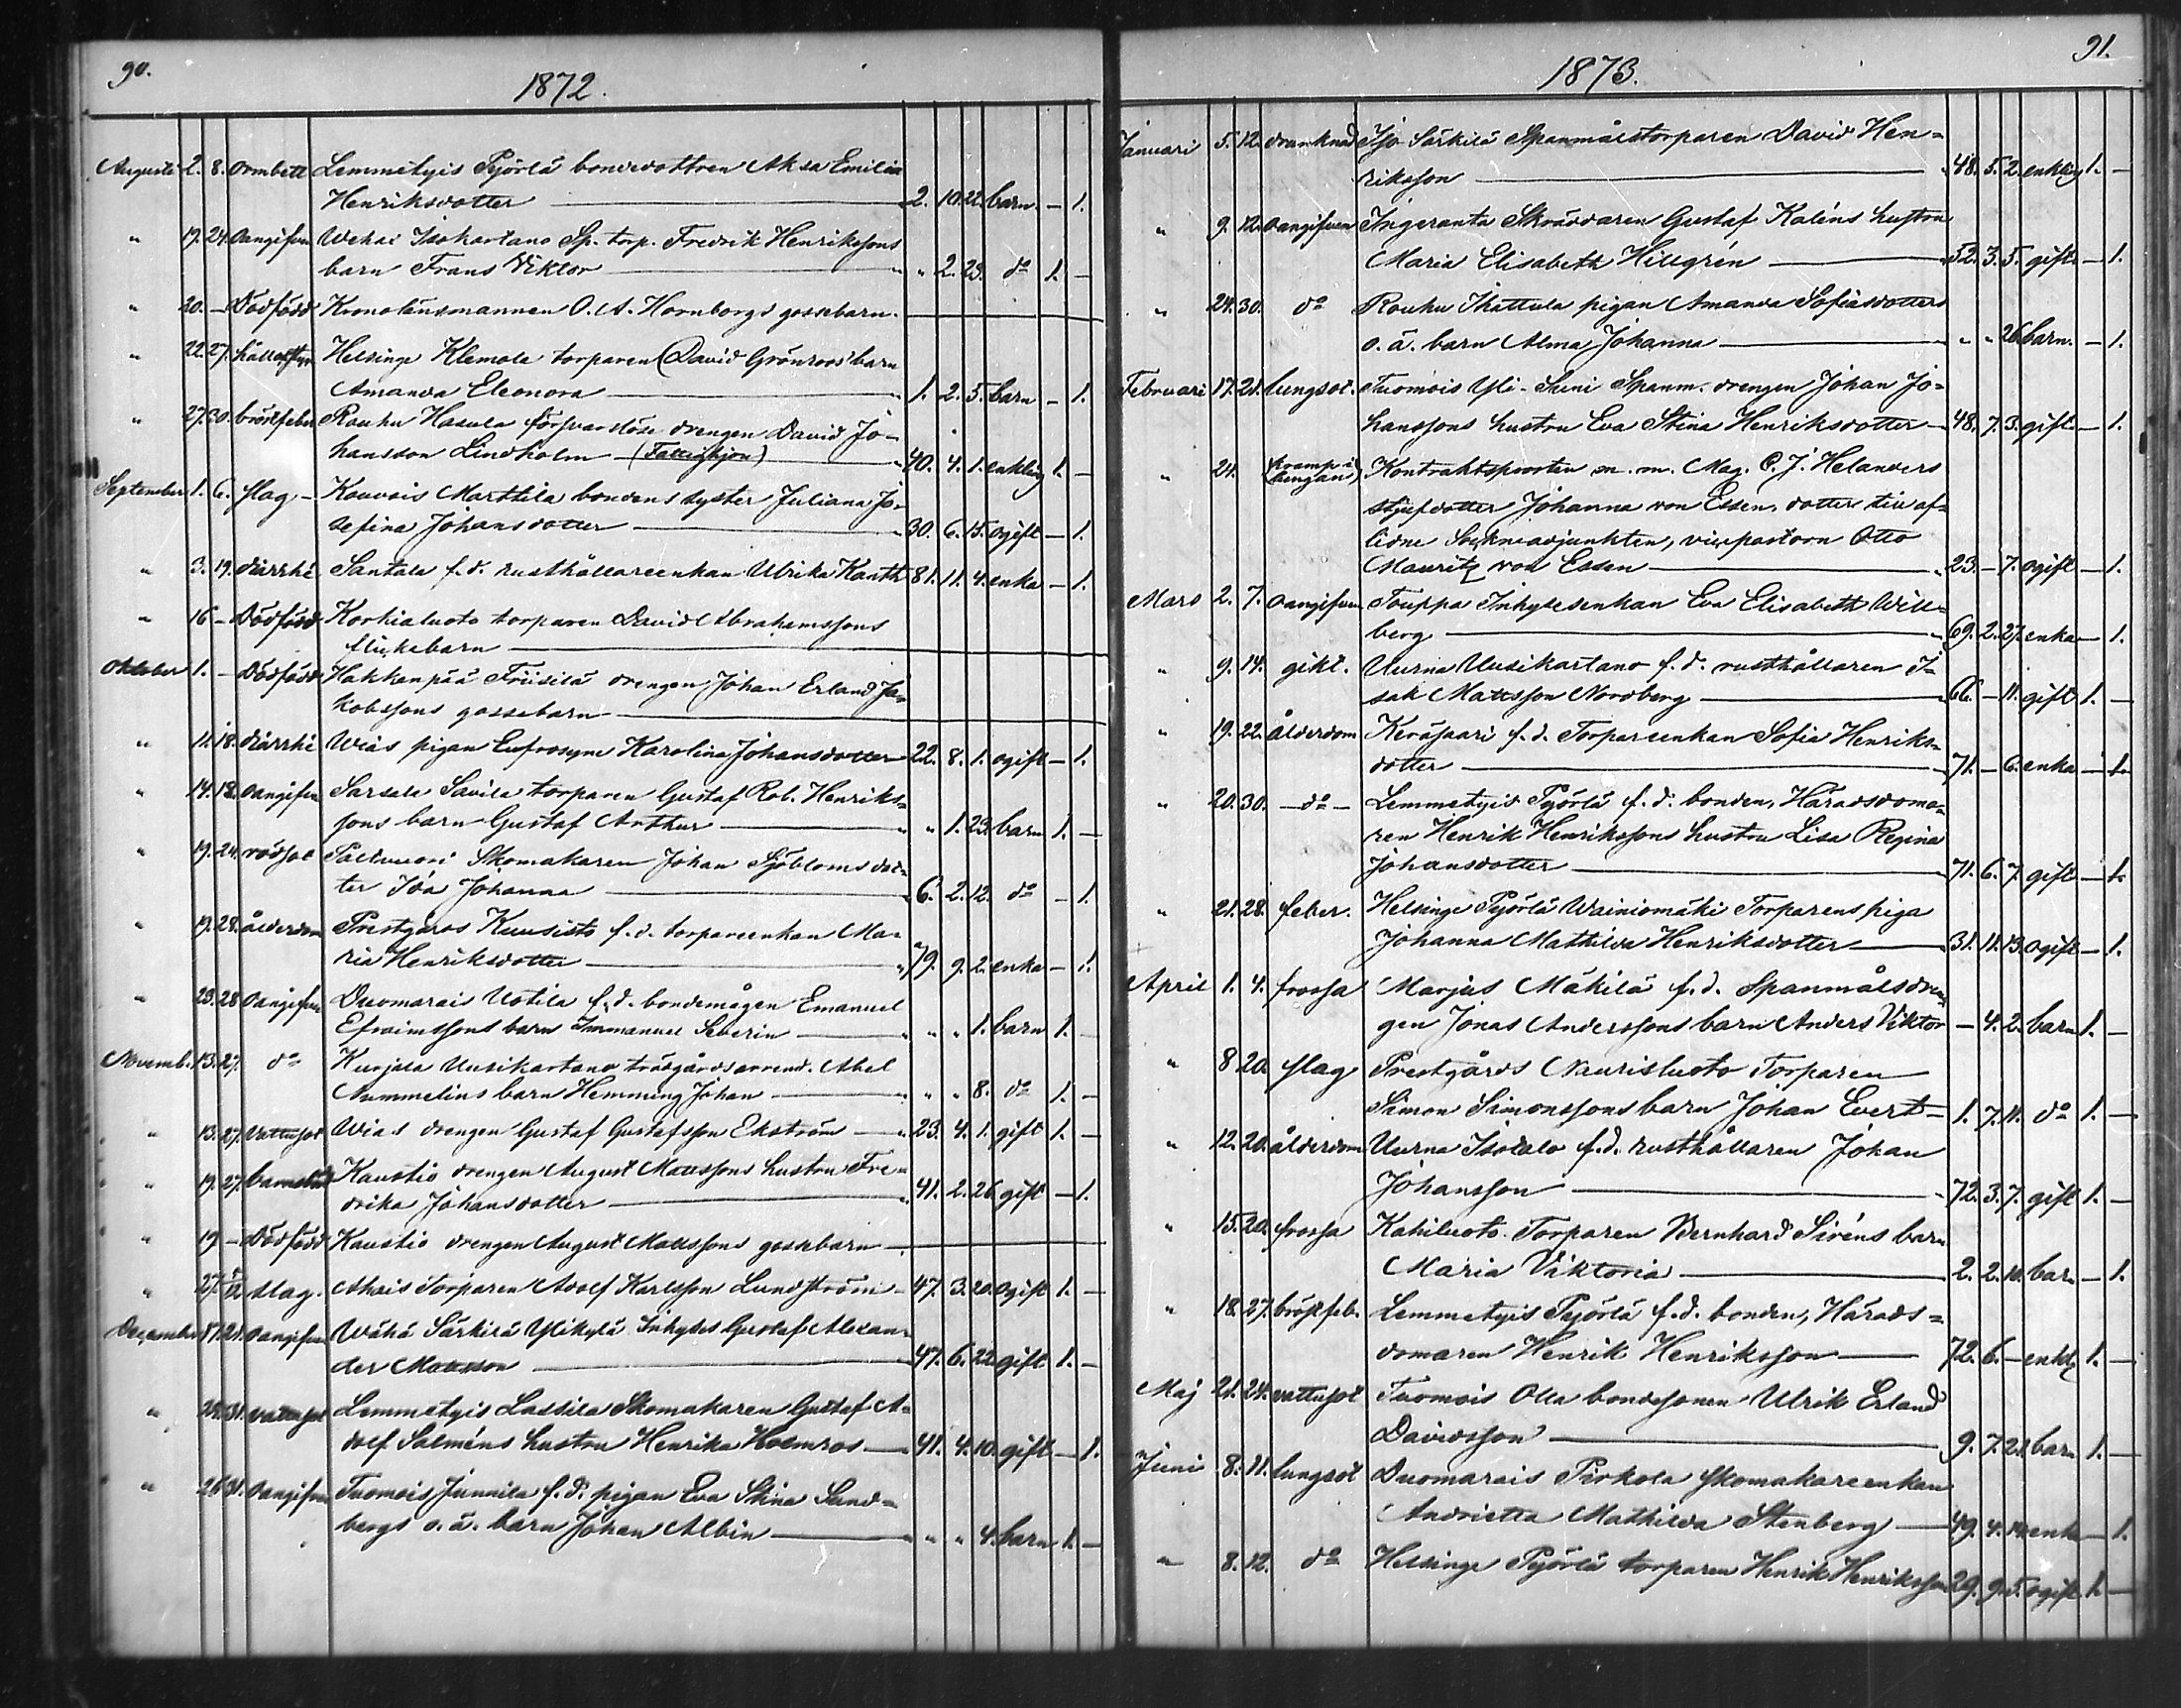 90.
1872.
Augusti 2. 8. Ormbett Lemmetyis Pyörlä bondedottren Aksa Emilia
Henriksdotter 2. 10. 22. barn. — 1.
" 19. 24. Oangifven Wehai Isokartano Sp. torp. Fredrik Henrikssons
barn Frans Viktor " 2. 23. do 1. —
" 20. — Dödfödd Kronolänsmannen O. A. Hornborgs gossebarn.
" 22. 27. Helsinge Klemola torparen David Grönroos' barn
Amanda Eleonora 1. 2. 5. barn — 1.
" 27. 30. bröstfeber Rouhu Hasula försvarslöse drengen David Jo-
hansson Lindholm (Fattighjon) 40. 4. 1. enkling 1. —
September 1. 6. slag — Kouvois Marttila bondens syster Juliana Jo-
sefina Johansdotter 30. 6. 15. ogift — 1.
" 3. 19. diarrhé Santala f. d. rusthållareenkan Ulrika Kanth 81. 11. 4. enka — 1.
" 16 — Dödfödd Korkialuoto torparen David Abrahamssons
flickebarn
Oktober 1. — Dödfödd Hakkenpää Friisilä drengen Johan Erland Ja-
kobssons gossebarn
" 11. 18. diarrhé Wiäs pigan Eufrosyne Karolina Johansdotter 22. 8. 1. ogift — 1.
" 14. 18. oangifven Sarsala Savila torparen Gustaf Rob. Henriks-
sons barn Gustaf Arthur " 1. 23. barn 1. —
" 19. 24. rödsot Palvuori Skomakaren Johan Sjöbloms dot-
ter Ida Johanna 6. 2. 12. do — 1.
" 19. 28. ålderdom Prestgårds Kuusisto f. d. torpareenkan Ma-
ria Henriksdotter 79. 9. 2. enka — 1.
" 23. 28 Oangifven Duomarais Uotila f. d. bondemågen Emanuel
Efraimssons barn Immanuel Severin " " 1. barn 1. —
Novemb. 13. 27. do Kurjala Uusikartano trädgårdsarrend. Abel
Nummelins barn Hemming Johan " " 8. do 1. —
" 13. 27. Vattusot Wiäs drengen Gustaf Gustafsson Ekström 23. 4. 1. gift 1. —
" 19. 27. Kaustio drengen August Matssons hustru Fre-
drika Johansdotter 41. 2. 26. gift — 1.
" 19 — Dödfödd Kaustio drengen August Matssons gossebarn
" 27. slag. Ahais Torparen Adolf Karlsson Lundström 47. 3. 20. ogift 1. —
December 21. Oangifven Wähä Särkilä Ylikylä Inhyses Gustaf Alexan-
der Matsson 47. 6. 22. gift 1. —
" 31. vattusot Lemmetyis Lassila Skomakaren Gustaf A-
dolf Salméns hustru Henrika Holmros 41. 4. 10. gift — 1.
" 26. 31. Oangifven Tuomois Junnila f. d. pigan Eva Stina Sand-
bergs o. ä. barn Johan Albin " " 4. barn 1. —
91.
1873.
Januari 5. 12. drunknad Iso Särkilä Spanmålstorparen David Hen-
riksson 48. 5. 2. enkling 1. —
" 9. 12. oangifven Ingeranta Skräddaren Gustaf Kaléns hustru
Maria Elisabeth Hillgrén 52. 3. 5. gift — 1.
" 24. 30. do Rouhu Ihattula pigan Amanda Sofiasdotters
o. ä. barn Alma Johanna " " 26. barn. — 1.
Februari 17. 21. lungsot. Tuomois Yli-Seni Spanm. drengen Johan Jo-
hanssons hustru Eva Stina Henriksdotter 48. 7. 3. gift — 1.
" 24. (kramp i lungan) Kontraktsprosten m. m. Mag. C. J. Helanders
stjufdotter Johanna von Essen, dotter till af-
lidne Sockneadjunkten, vicepastorn Otto
Mauritz von Essen 23. — 7. ogift — 1.
Mars 2. 7. Oangifven Touppa Inhysesenkan Eva Elisabeth Will-
berg 69. 2. 27. enka — 1.
" 9. 14. gikt. Uurna Uusikartano f. d. rusthållaren I-
sak Mattsson Nordberg 66. — 11. gift 1. —
" 19. 22. ålderdom Keräsaari f. d. Torpareenkan Sofia Henriks-
dotter 71. — 6. enka — 1.
" 20. 30. — do — Lemmetyis Pyörlä f. d. bonden, Häradsdoma-
ren Henrik Henrikssons hustru Lisa Regina
Johansdotter 71. 6. 7. gift — 1.
" 21. 28. feber. Helsinge Pyörlä Wainiomäki Torparens piga
Johanna Mathilda Henriksdotter 31. 11. 13. ogift — 1.
April 1. 4. frossa Marjus Mäkilä f. d. Spanmålsdren-
gen Jonas Anderssons barn Anders Viktor — 4. 2. barn 1. —
" 8 20. slag Prestgårds Naurisluoto Torparen
Simon Simonssons barn Johan Evert 1. 7. 11. do 1. —
" 12. 20. ålderdom Uurna Isotalo f. d. rusthållaren Johan
Johansson 72. 3. 7. gift 1. —
" 15. 20. frossa Kahiluoto Torparen Bernhard Siréns barn
Maria Viktoria 2. 2. 10. barn — 1.
" 18. 27. bröstfeb. Lemmetyis Pyörlä f. d. bonden, Härads-
domaren Henrik Henriksson 72. 6. — enkl. 1. —
Maj 21. 24. vattusot Tuomois Olla bondesonen Ulrik Erland
Davidsson 9. 7. 21. barn 1. —
Juni 8. 11. lungsot Duomarais Pirkola Skomakareenkan
Andrietta Mathilda Stenberg 49. 4. 14. enka — 1.
" 8. 12. do Helsinge Pyörlä torparen Henrik Henriksson 29. 9. 5. ogift 1. —